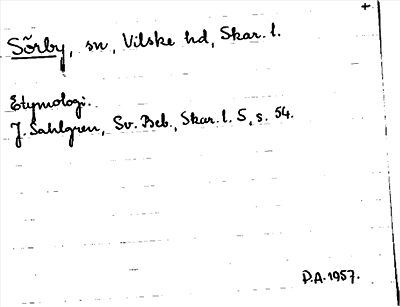 +
Sörby, sn, Vilske hd, Skar. l.
Etymologi.
J. Sahlgren, Sv. Beb., Skar. l. 5, s. 54.
P.A. 1957.